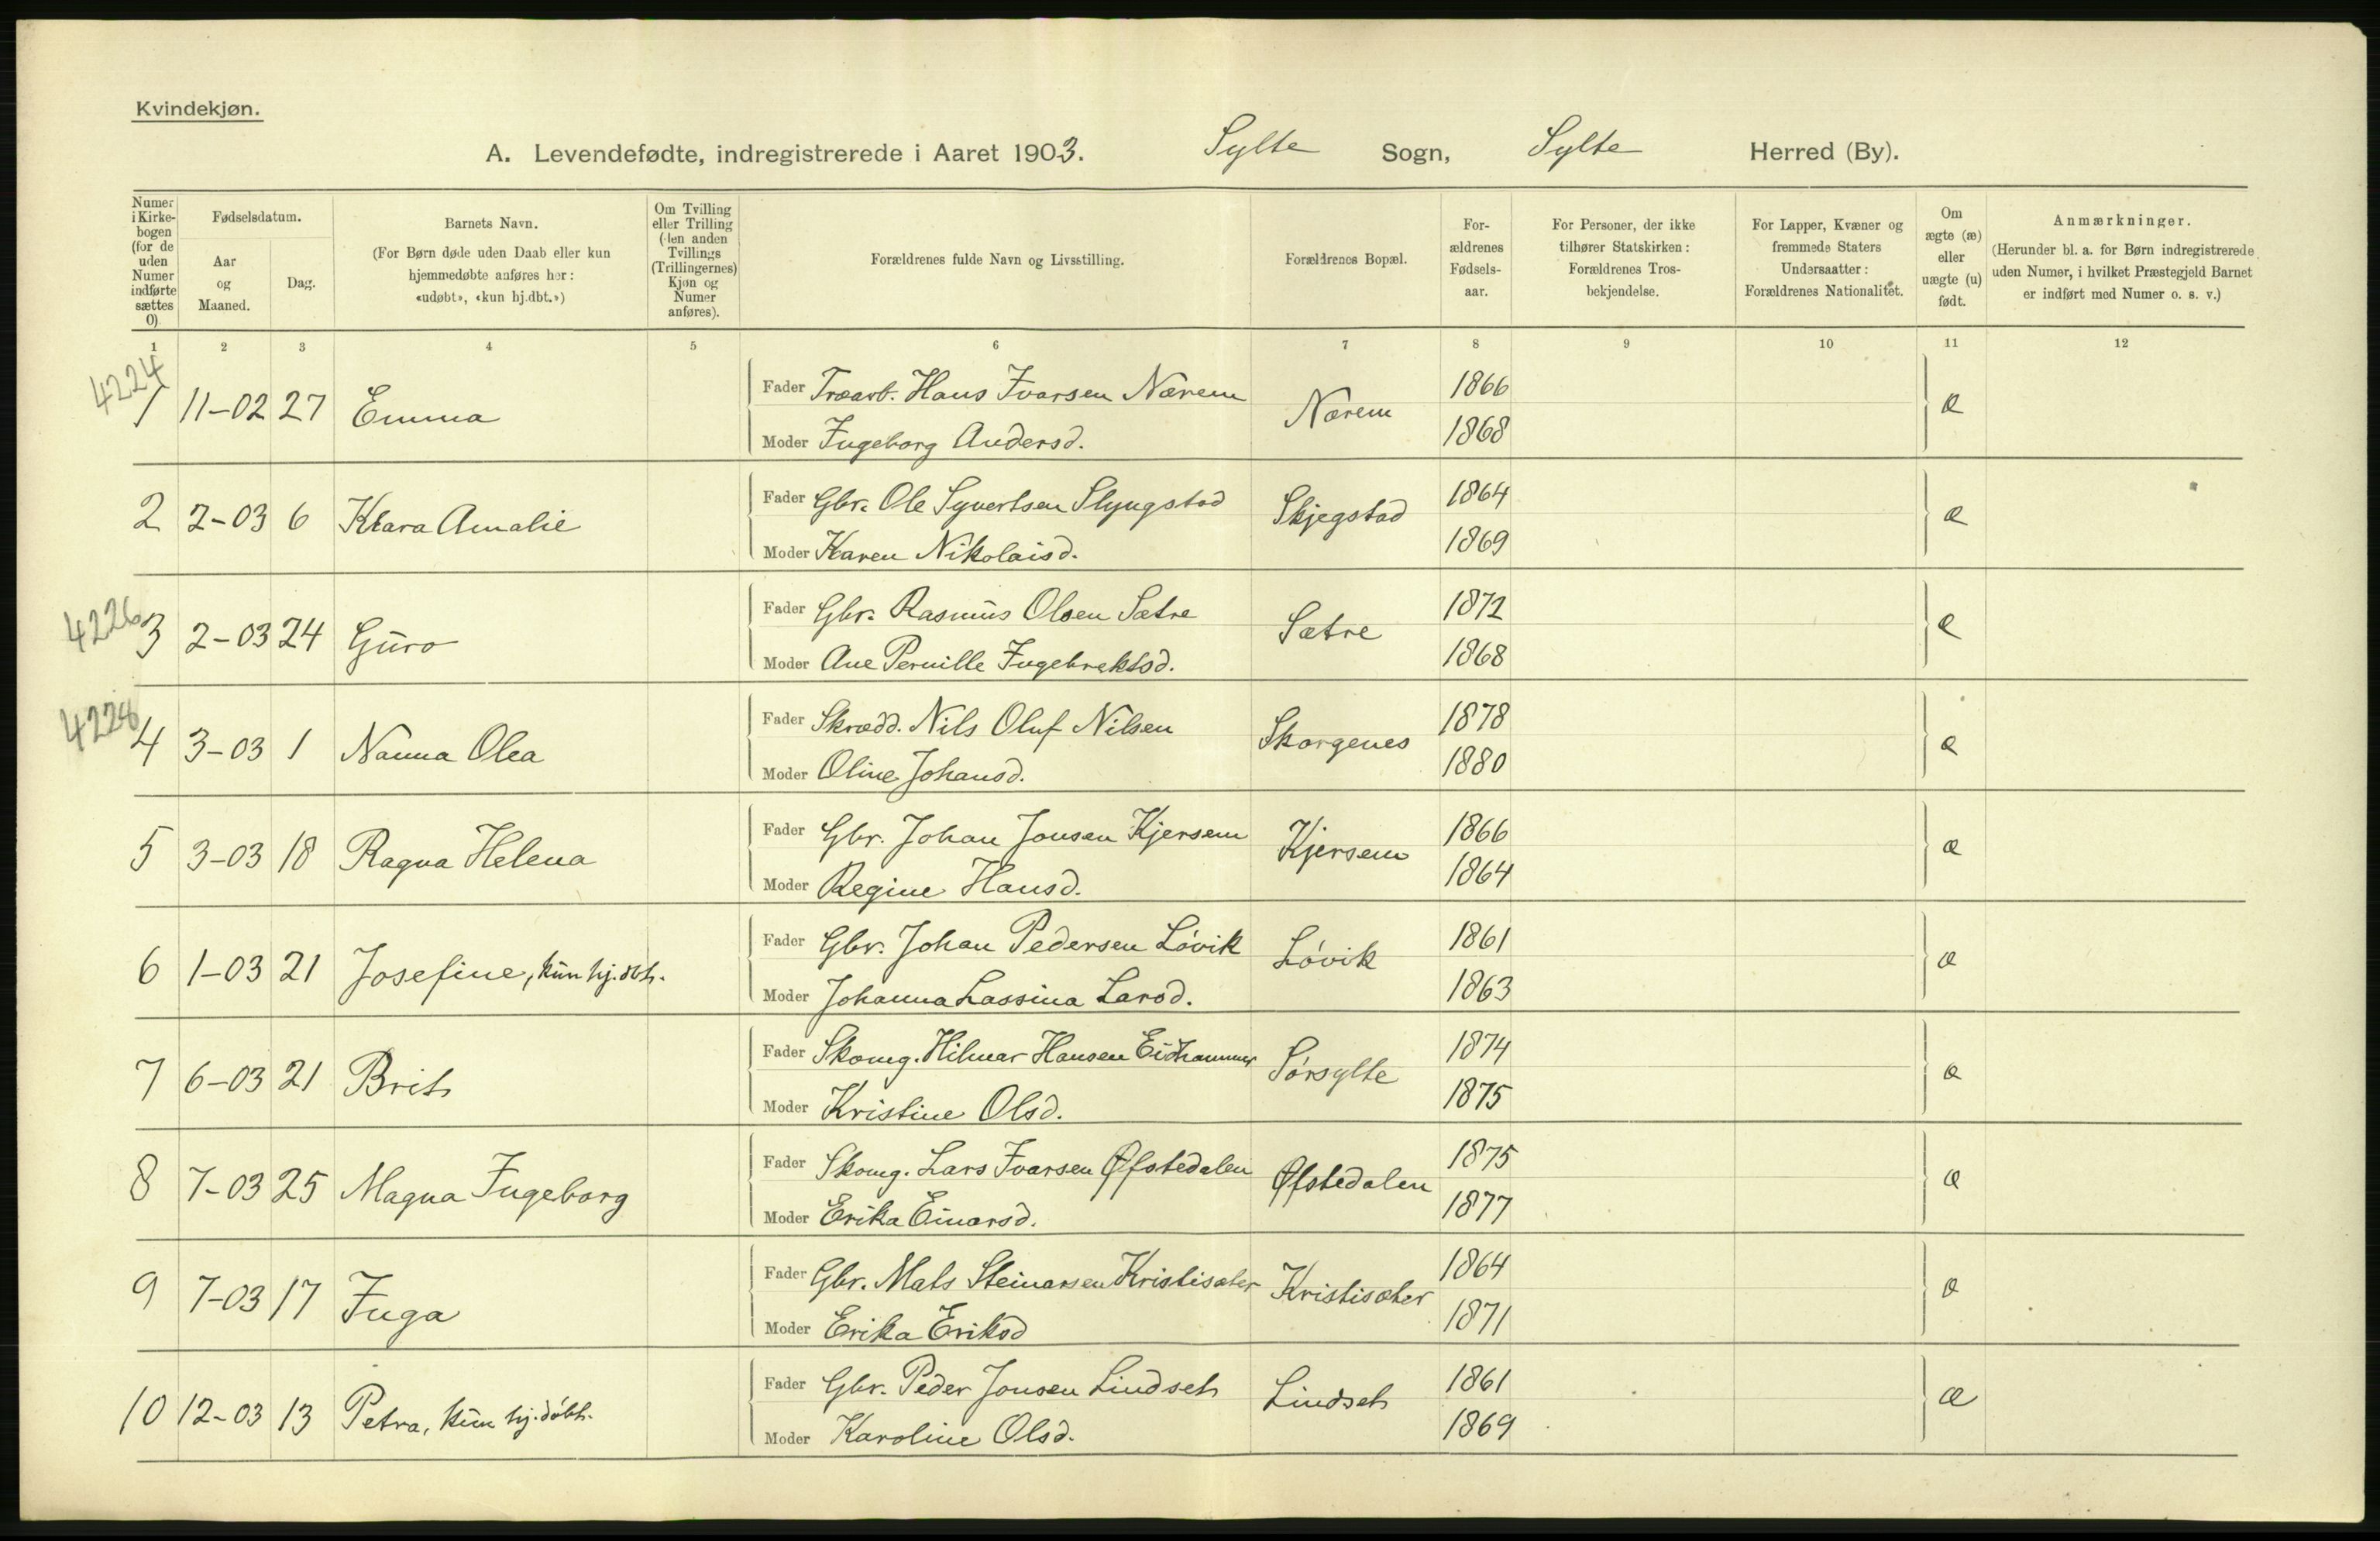 Kvindekjøn.
A. Levendefødte, indregistrerede i Aaret 1903. Sylte Sogn, Sylte Herred (By).
Numer i Kirke-bogen (for de uden Numer indførte sættes 0)
Fødselsdatum.
Aar og Maaned.
Dag.
Barnets Navn.
(For Børn døde uden Daab eller kun hjemmedøbte anføres her: «udøbt», «kun hj.dbt.»)
Om Tvilling eller Trilling (den anden Tvillings (Trillingernes) Kjøn og Numer anføres).
Forældrenes fulde Navn og Livsstilling.
Forældrenes Bopæl.
For-ældrenes Fødsels-aar.
For Personer, der ikke tilhører Statskirken: Forældrenes Tros-bekjendelse.
For Lapper, Kvæner og fremmede Staters Undersaatter: Forældrenes Nationalitet.
Om ægte (æ) eller uægte (u) født.
Anmærkninger.
(Herunder bl. a. for Børn indregistrerede uden Numer, i hvilket Præstegjeld Barnet er indført med Numer o. s. v.)
1 2 3 4 5 6 7 8 9 10 11 12
4224
1 11-02 27 Emma Fader Træarb. Hans Ivarsen Nærem Nærem 1866 æ
Moder Ingeborg Andersd. 1868
2 2-03 6 Klara Amalie Fader Gbr. Ole Syvertsen Slyngstad Skjegstad 1864 æ
Moder Karen Nikolaisd. 1869
4226
3 2-03 24 Guro Fader Gbr. Rasmus Olsen Sætre Sætre 1872 æ
Moder Ane Pernille Ingebrektsd. 1868
4228
4 3-03 1 Nanna Olea Fader Skrædd. Nils Oluf Nilsen Skorgenes 1878 æ
Moder Oline Johansd. 1880
5 3-03 18 Ragna Helena Fader Gbr. Johan Jonsen Kjersem Kjersem 1866 æ
Moder Regine Hansd. 1864
6 1-03 21 Josefine, kun hj.dbt. Fader Gbr. Johan Pedersen Lóvik Lóvik 1861 æ
Moder Johanna Lassina Larsd. 1863
7 6-03 21 Brit Fader Skomg. Hilmar Hansen Eidhammer Sórsylte 1874 æ
Moder Kristine Olsd. 1875
8 7-03 25 Magna Ingeborg Fader Skomg. Lars Ivarsen Øfstedalen Øfstedalen 1875 æ
Moder Erika Einarsd. 1877
9 7-03 17 Inga Fader Gbr. Mats Steinarsen Kristisæter Kristisæter 1864 æ
Moder Erika Eriksd 1871
10 12-03 13 Petra, kun hj.dóbt. Fader Gbr. Peder Jonsen Lindset Lindset 1861 æ
Moder Karoline Olsd. 1869